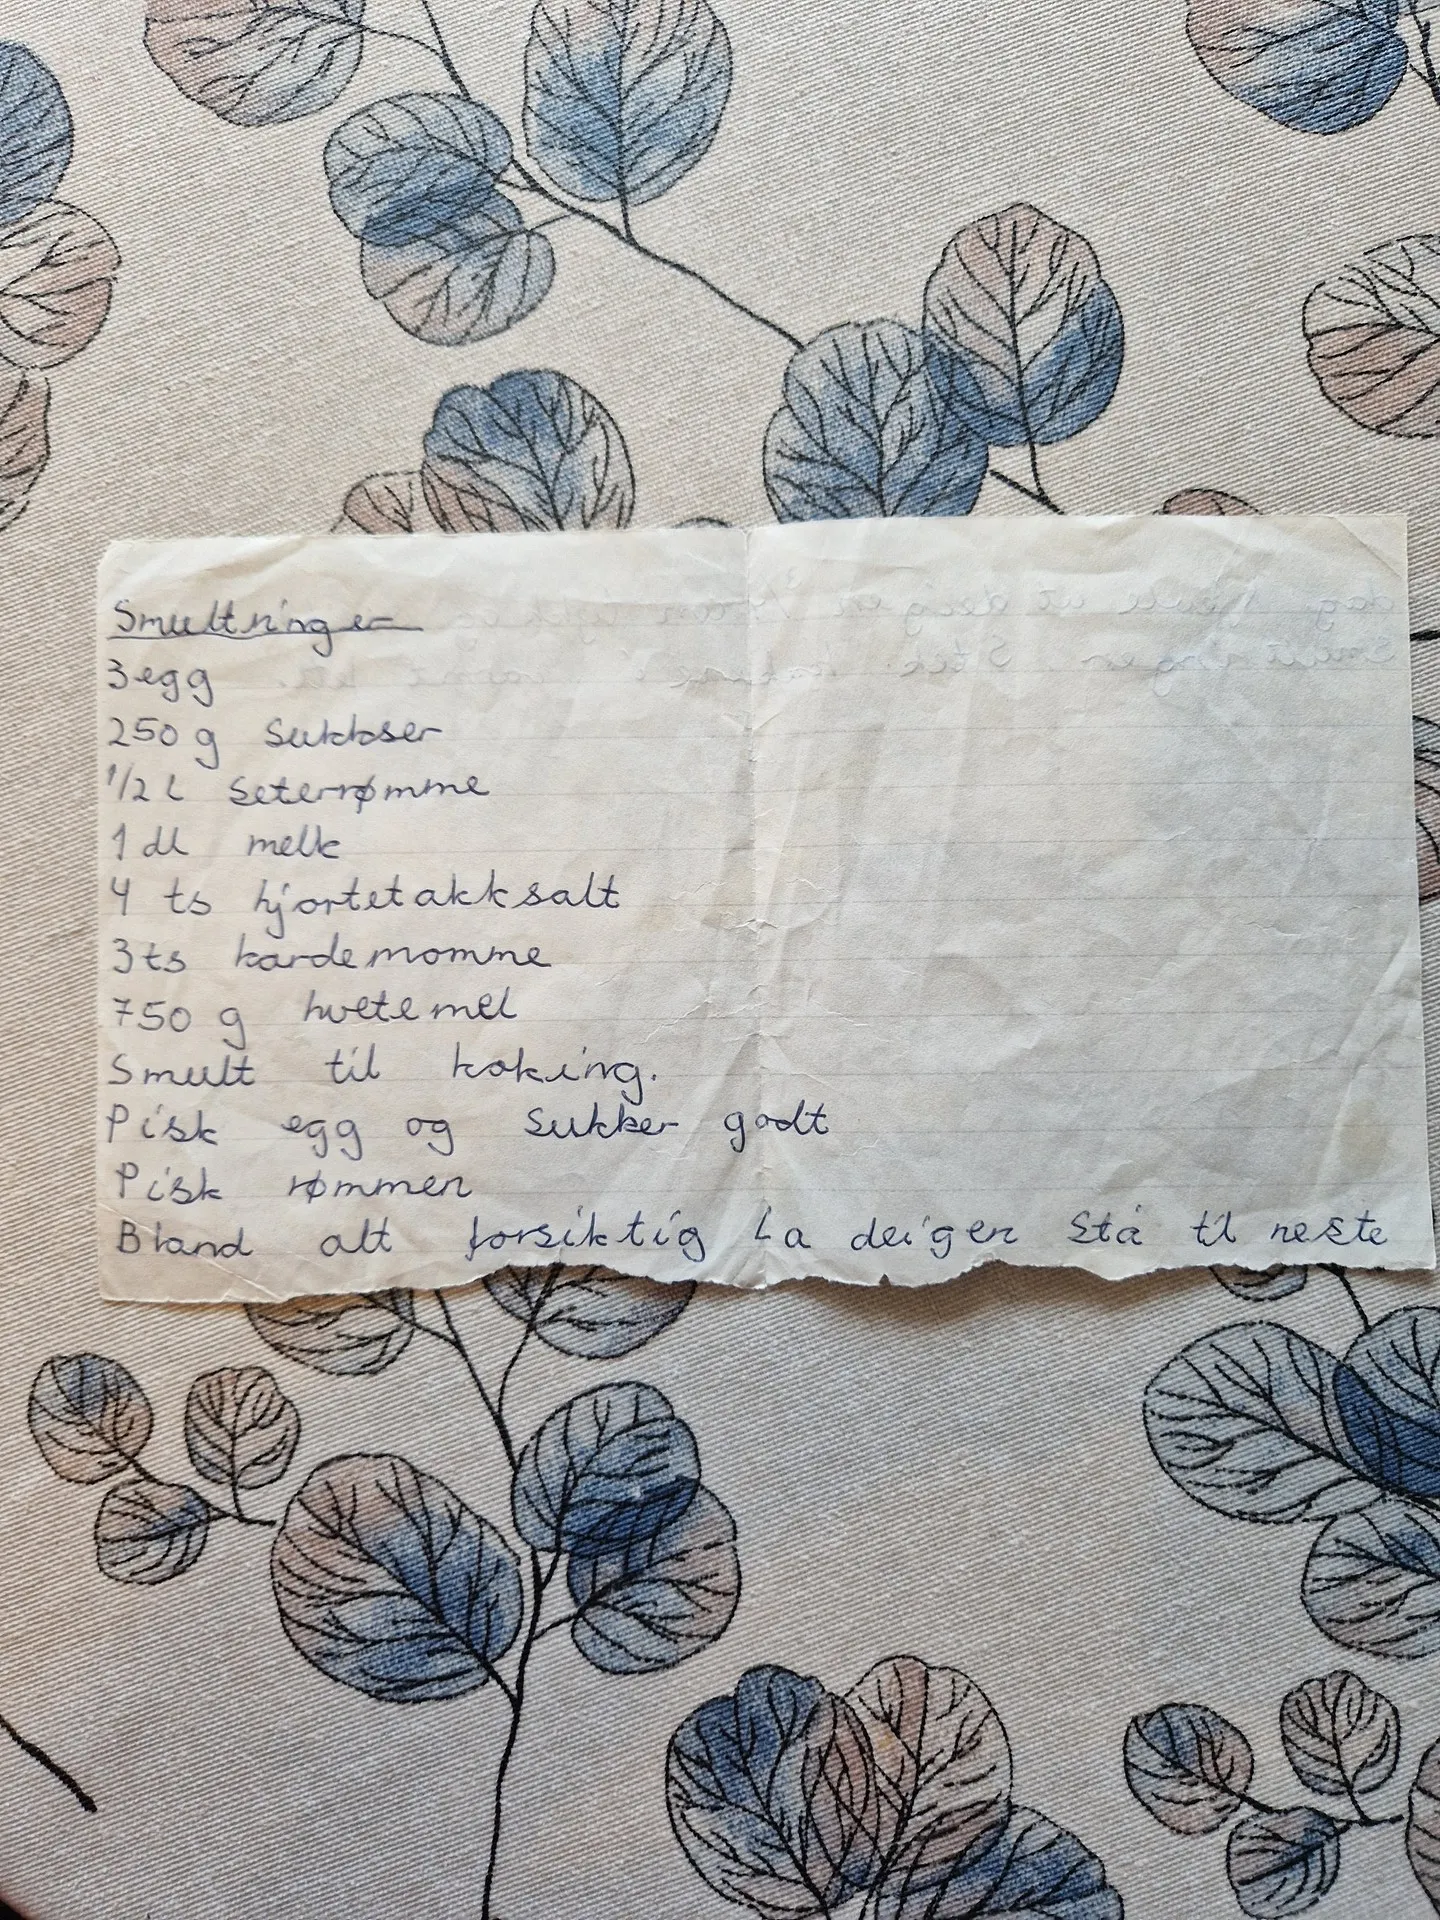 Smultringer
3 egg
250 g Sukkser
1/2 l Seterrømme
1 dl melk
4 ts hjortetakksalt
3 ts kardemomme
750 g hvetemel
Smult til koking.
Pisk egg og Sukker godt
Pisk rømmen
Bland alt forsiktig La deigen Stå til neste